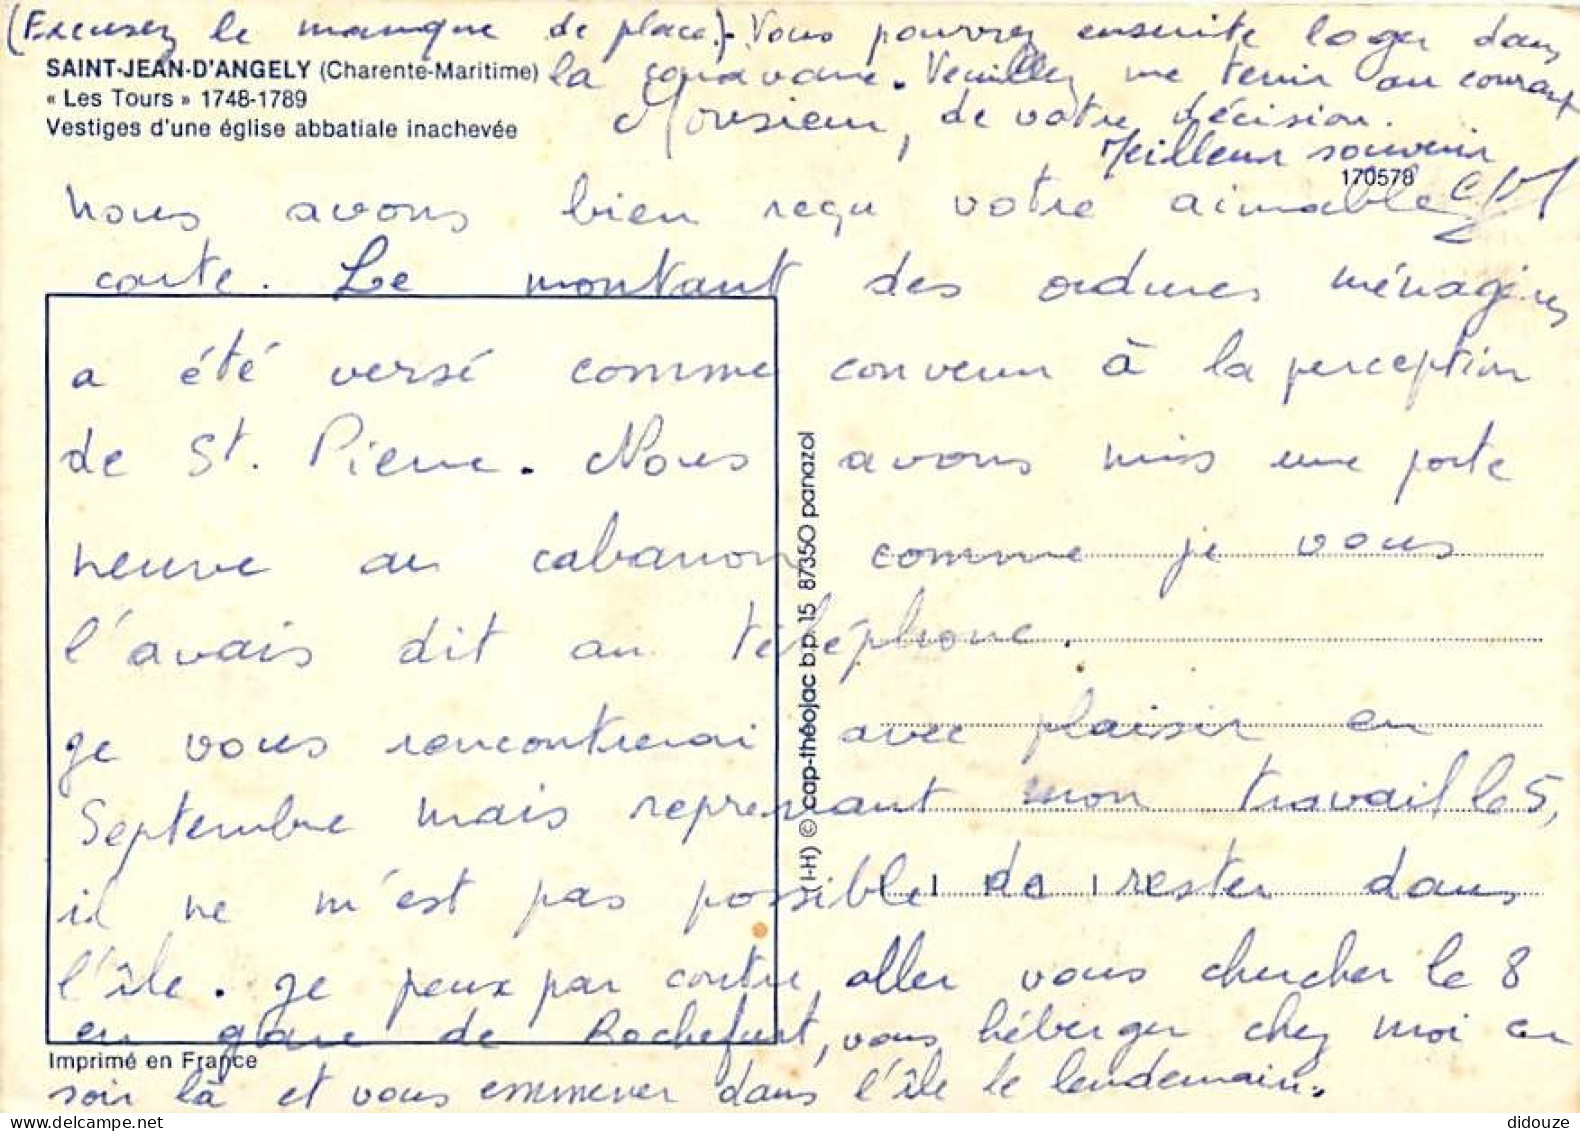 (Excusez le manque de place.)- Vous pourrez ensuite loger dans
SAINT-JEAN-D'ANGELY (Charente-Maritime)
« Les Tours » 1748-1789
Vestiges d'une église abbatiale inachevée
la caravane. Veuillez me tenir au courant
Monsieur, de votre décision.
Meilleur souvenir
170578
Nous avons bien reçu votre aimable
carte. Le montant des ordures ménagères
a été versé comme convenu à la perception
de St. Pierre. Nous avons mis une porte
neuve au cabanon comme je vous
l'avais dit au téléphone.
je vous rencontrerai avec plaisir en
Septembre mais reprenant mon travail le 5,
il ne m'est pas possible de rester dans
l'île. je peux par contre aller vous chercher le 8
en gare de Rochefort, vous héberger chez moi ce
soir là et vous emmener dans l'île le lendemain.
Imprimé en France
(I-H) © cap-théojac b.p. 15 87350 panazol
didouze